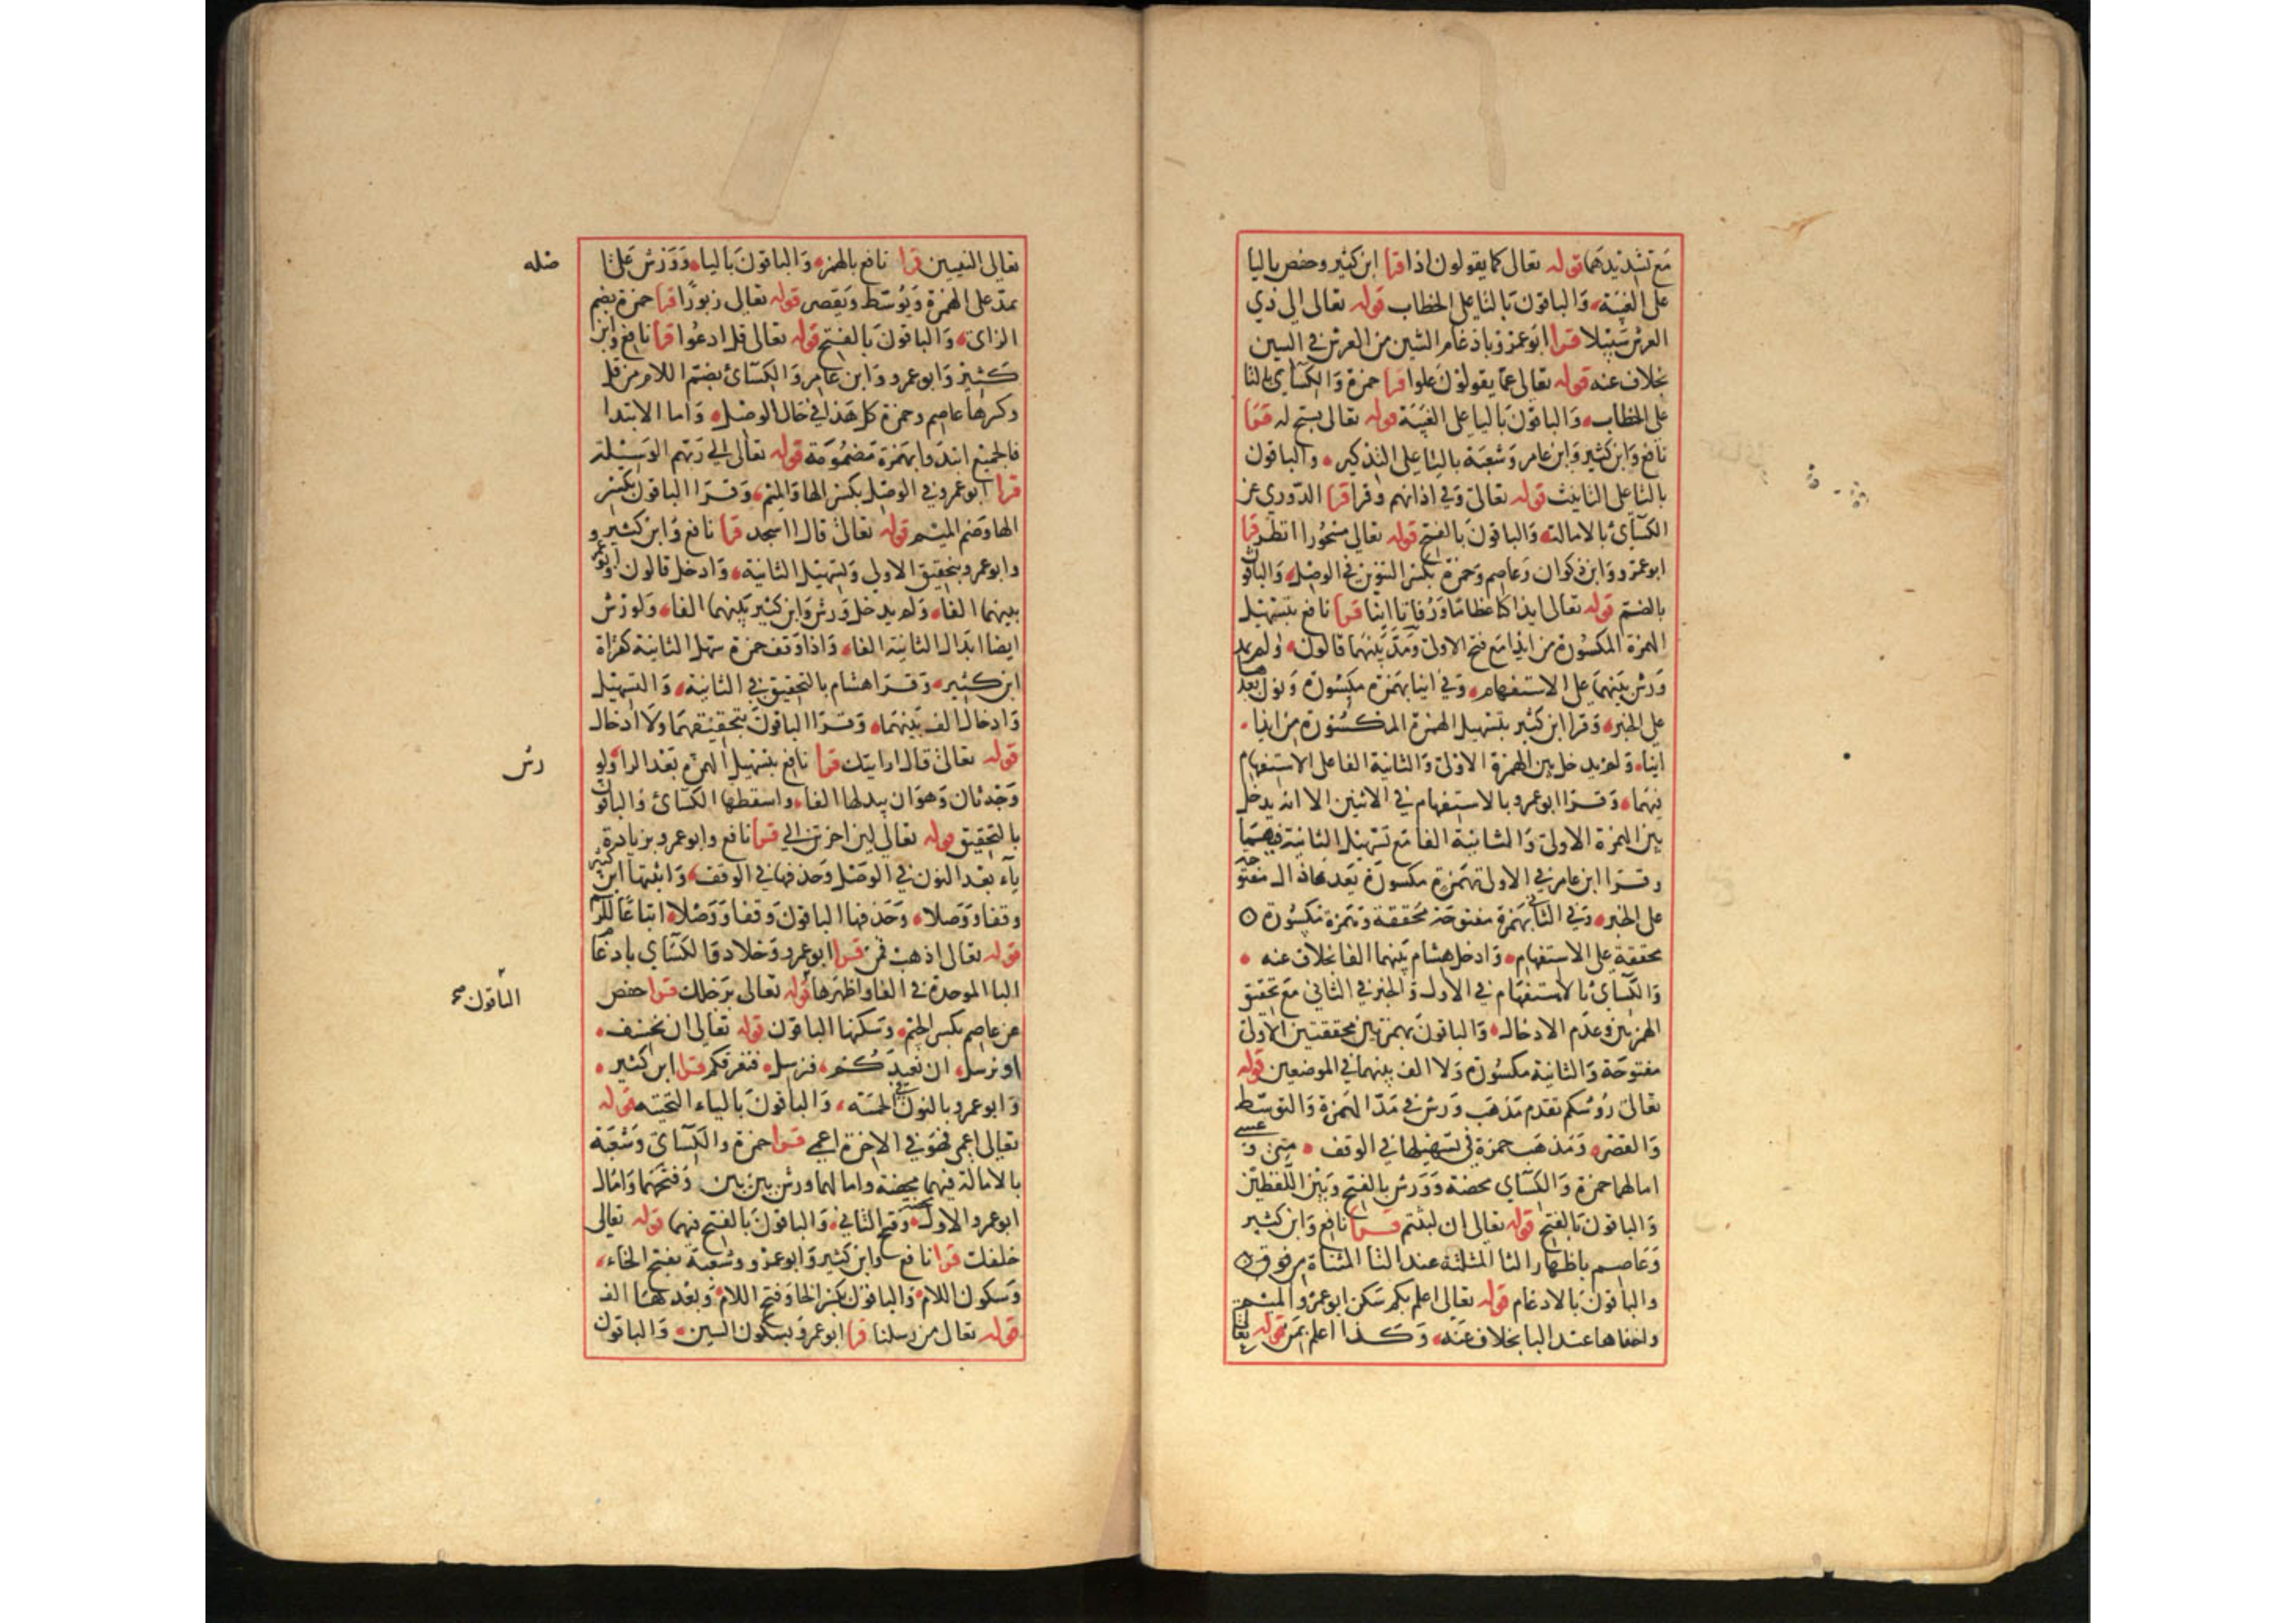 مع تشديدهما قوله تعالى كما يقولون اذا قرا ابن كثير وحفص باليا
على الغيبة والباقون بالتا على الخطاب قوله تعالى الى ذي
العرش سبيلا قرا ابو عمرو بادغام الشين من العرش في السين
بخلاف عنه قوله تعالى عما يقولون علوا قرا حمزة والكسآي بالتا
على الخطاب والباقون باليا على الغيبة قوله تعالى يسبح له قرا
نافع وابن كثير وابن عامر وشعبة باليا على التذكير والباقون
بالتا على التانيث قوله تعالى وفي اذانهم وقرا قرا الدوري عن
الكسآئ بالامالة والباقون بالفتح قوله تعالى مسحورا انظر قرا
ابو عمرو وابن ذكوان وعاصم وحمزة بكسر التنوين في الوصل والباقون
بالضم قوله تعالى ايذا كنا عظاما ورفاتا اينا قرا نافع بتسهيل
الهمزة المكسورة من ايذا مع فتح الاولى ومد بينهما قالون ولم يمد
ورش بينهما على الاستفهام وفي اينا بهمزة مكسورة ونون بعدها
على الخبر وقرا ابن كثير بتسهيل الهمزة المكسورة من ايذا
اينا ولم يدخل بين الهمزة الاولى والثانية الفا على الاستفهام
فيهما وقرا ابو عمرو بالاستفهام في الاثنين الا انه يدخل
بين الهمزة الاولى والثانية الفا مع تسهيل الثانية فيهما
وقرا ابن عامر في الاول بهمزة مكسورة بعدها ذال مفتوحة
على الخبر وفي الثاني بهمزة مفتوحة محققة وهمزة مكسورة
محققة على الاستفهام وادخل هشام بينهما الفا بخلاف عنه
والكسآئ بالاستفهام في الاول والخبر في الثاني مع تحقيق
الهمزتين وعدم الادخال والباقون بهمزتين محققتين الاولى
مفتوحة والثانية مكسورة ولا الف بينهما في الموضعين قوله
تعالى رؤسكم تقدم مذهب ورش في مد الهمزة والتوسط
والقصر ومذهب حمزة في تسهيلها في الوقف متى و عسى
امالهما حمزة والكسآي محضة وورش بالفتح وبين اللفظين
والباقون بالفتح قوله تعالى ان لبثتم قرا نافع وابن كثير
وعاصم باظهار الثا المثلثة عند التا المثناة من فوق
والباقون بالادغام قوله تعالى اعلم بكم سكن ابو عمرو الميم
واخفاها عند البا بخلاف عنه وكذا اعلم بمن قوله تعالى
تعالى النبيين قرا نافع بالهمز والباقون باليا وورش على
يمد على الهمزة ويوسط ويقصر قوله تعالى زبورا قرا حمزة بضم
الزاى والباقون بالفتح قوله تعالى قل ادعوا قرا نافع وابن
كثير وابو عمرو وابن عامر والكسآئ بضم اللام من قل
وكرها عاصم وحمزة كل هذا في حال الوصل واما الابتدا
فالجميع ابتدوا بهمزة مضمومة قوله تعالى الى ربهم الوسيلة
قرا ابو عمرو في الوصل بكسر الها والميم وقرا الباقون بكسر
الها وضم الميم قوله تعالى قال ااسجد قرا نافع وابن كثير و
وابو عمرو بتحقيق الاولى وتسهيل الثانية وادخل قالون وابو عمرو
بينهما الفا ولم يدخل ورش وابن كثير بينهما الفا ولورش
ايضا ابدال الثانية الفا واذا وقف حمزة سهل الثانية كقراة
ابن كثير وقرا هشام بالتحقيق في الثانية والتسهيل
وادخال الف بينهما وقرا الباقون بتحقيقهما ولا ادخال
قوله تعالى قال ارايتك قرا نافع بتسهيل الهمزة بعد الرا ولو
وجه ثان وهو ان يبدلها الفا واسقطها الكسآئ والباقون
بالتحقيق قوله تعالى لين اخرتن الى قرا نافع وابو عمرو بزيادة
يآء بعد النون في الوصل وحذفها في الوقف واثبتها ابن كثير
وقفا ووصلا وحذفها الباقون وقفا ووصلا اتباعا للرسم
قوله تعالى اذهب فمن قرا ابو عمرو وخلاد والكسآي بادغام
البا الموحدة في الفا واظهرها قوله تعالى ورجلك قرا حفص
عن عاصم بكسر الجيم وسكنها الباقون قوله تعالى ان نخسف
او نرسل ان نعيدكم فنرسل فنغرقكم قرا ابن كثير
وابو عمرو بالنون في الخمسة والباقون بالياء التحتية قوله
تعالى اعمى فهو في الاخرة اعمى قرا حمزة والكسآئ وشعبة
بالامالة فيهما محضة وامالهما ورش بين بين وفتحهما وامال
ابو عمرو الاول محضة وفتح الثاني والباقون بالفتح فيهما قوله تعالى
خلفك قرا نافع وابن كثير وابو عمرو وشعبة بفتح الخاء
وسكون اللام والباقون بكسر الخا وفتح اللام وبعدها الف
قوله تعالى من رسلنا قرا ابو عمرو بسكون السين والباقون
صله
رش
الباقون صح